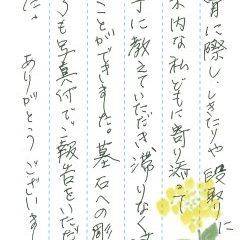 に際し、しきたりや段取りに
内な私どもに寄り添って
丁に教えていただき滞りなく
ことができました。墓石への彫
も写真付でご報告をいただ
ありがとうございまし